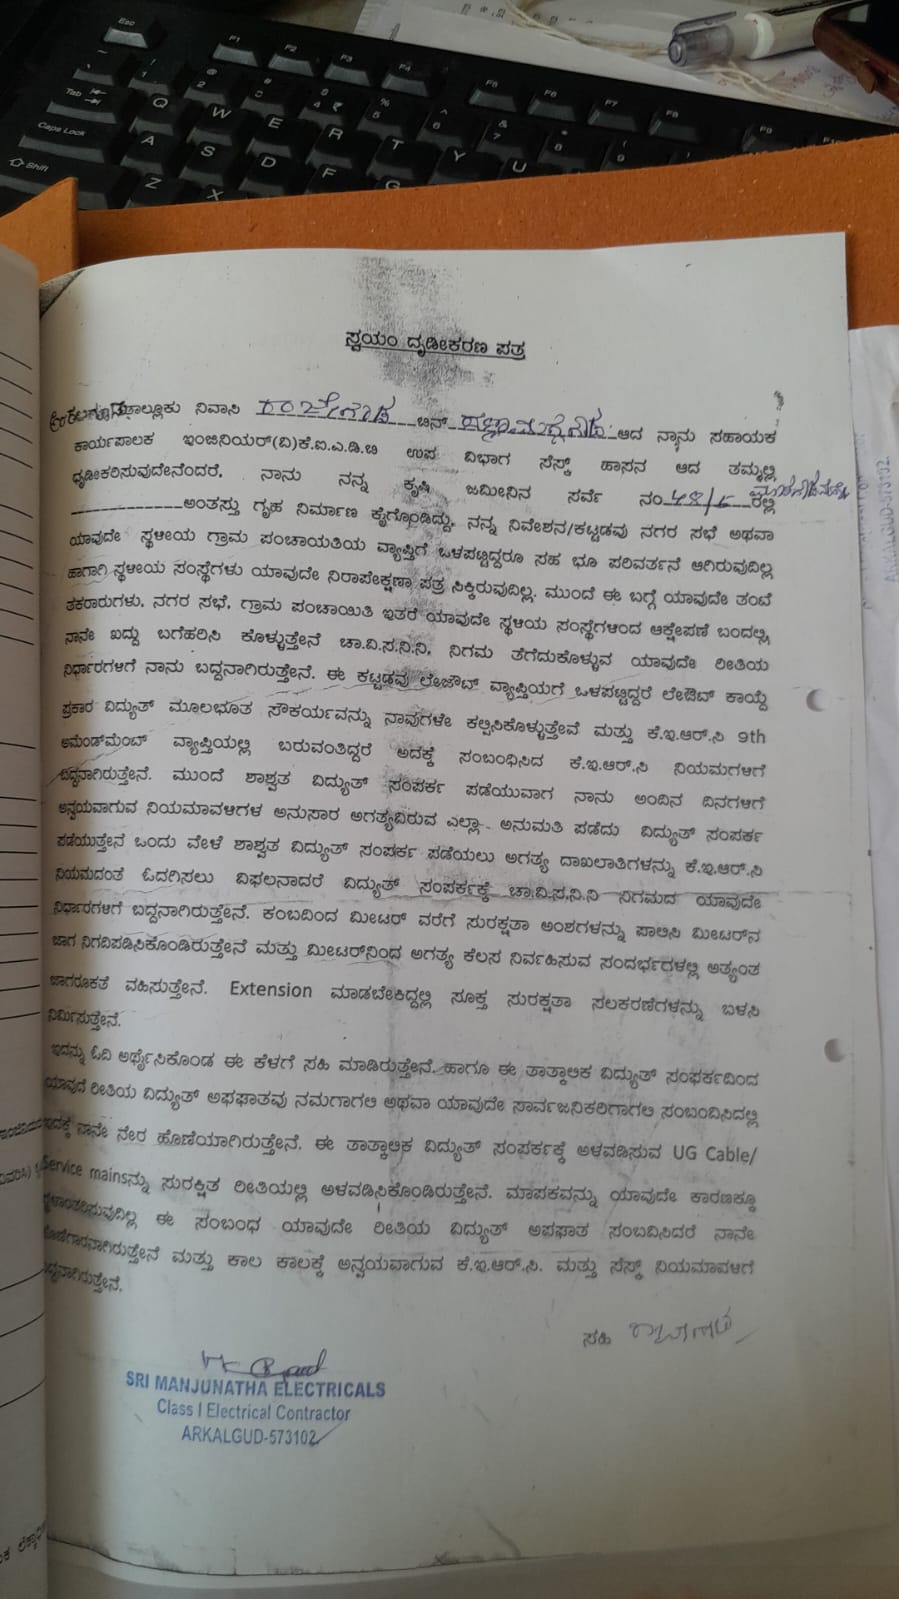 Esc F1 F2 F3 F4 F5 F6 F7 F8 F9
Tab Q W E R T Y U
Caps Lock A S D F G
Shift Z X
ಸ್ವಯಂ ದೃಡೀಕರಣ ಪತ್ರ
ಅರಕಲಗೂಡು ತಾಲ್ಲೂಕು ನಿವಾಸಿ ಬಿನ್ ಆದ ನಾನು ಸಹಾಯಕ
ಕಾರ್ಯಪಾಲಕ ಇಂಜಿನಿಯರ್(ವಿ)ಕೆ.ಐ.ಎ.ಡಿ.ಬಿ ಉಪ ವಿಭಾಗ ಸೆಸ್ಕ್ ಹಾಸನ ಆದ ತಮ್ಮಲ್ಲಿ
ಧೃಡೀಕರಿಸುವುದೇನೆಂದರೆ, ನಾನು ನನ್ನ ಕೃಷಿ ಜಮೀನಿನ ಸರ್ವೆ ನಂ ರಲ್ಲಿ
ಅಂತಸ್ತು ಗೃಹ ನಿರ್ಮಾಣ ಕೈಗೊಂಡಿದ್ದು, ನನ್ನ ನಿವೇಶನ/ಕಟ್ಟಡವು ನಗರ ಸಭೆ ಅಥವಾ
ಯಾವುದೇ ಸ್ಥಳೀಯ ಗ್ರಾಮ ಪಂಚಾಯತಿಯ ವ್ಯಾಪ್ತಿಗೆ ಒಳಪಟ್ಟಿದ್ದರೂ ಸಹ ಭೂ ಪರಿವರ್ತನೆ ಆಗಿರುವುದಿಲ್ಲ
ಹಾಗಾಗಿ ಸ್ಥಳೀಯ ಸಂಸ್ಥೆಗಳು ಯಾವುದೇ ನಿರಾಪೇಕ್ಷಣಾ ಪತ್ರ ಸಿಕ್ಕಿರುವುದಿಲ್ಲ. ಮುಂದೆ ಈ ಬಗ್ಗೆ ಯಾವುದೇ ತಂಟೆ
ತಕರಾರುಗಳು, ನಗರ ಸಭೆ, ಗ್ರಾಮ ಪಂಚಾಯಿತಿ ಇತರೆ ಯಾವುದೇ ಸ್ಥಳೀಯ ಸಂಸ್ಥೆಗಳಿಂದ ಆಕ್ಷೇಪಣೆ ಬಂದಲ್ಲಿ,
ನಾನೇ ಖುದ್ದು ಬಗೆಹರಿಸಿ ಕೊಳ್ಳುತ್ತೇನೆ ಚಾ.ವಿ.ಸ.ನಿ.ನಿ, ನಿಗಮ ತೆಗೆದುಕೊಳ್ಳುವ ಯಾವುದೇ ರೀತಿಯ
ನಿರ್ಧಾರಗಳಿಗೆ ನಾನು ಬದ್ದನಾಗಿರುತ್ತೇನೆ. ಈ ಕಟ್ಟಡವು ಲೇಔಟ್ ವ್ಯಾಪ್ತಿಯಗೆ ಒಳಪಟ್ಟಿದ್ದರೆ ಲೇಔಟ್ ಕಾಯ್ದೆ
ಪ್ರಕಾರ ವಿದ್ಯುತ್ ಮೂಲಭೂತ ಸೌಕರ್ಯವನ್ನು ನಾವುಗಳೇ ಕಲ್ಪಿಸಿಕೊಳ್ಳುತ್ತೇವೆ ಮತ್ತು ಕೆ.ಇ.ಆರ್.ಸಿ 9th
ಅಮೆಂಡ್‌ಮೆಂಟ್ ವ್ಯಾಪ್ತಿಯಲ್ಲಿ ಬರುವಂತಿದ್ದರೆ ಅದಕ್ಕೆ ಸಂಬಂಧಿಸಿದ ಕೆ.ಇ.ಆರ್.ಸಿ ನಿಯಮಗಳಿಗೆ
ಬದ್ದನಾಗಿರುತ್ತೇನೆ. ಮುಂದೆ ಶಾಶ್ವತ ವಿದ್ಯುತ್ ಸಂಪರ್ಕ ಪಡೆಯುವಾಗ ನಾನು ಅಂದಿನ ದಿನಗಳಿಗೆ
ಅನ್ವಯವಾಗುವ ನಿಯಮಾವಳಿಗಳ ಅನುಸಾರ ಅಗತ್ಯವಿರುವ ಎಲ್ಲಾ ಅನುಮತಿ ಪಡೆದು ವಿದ್ಯುತ್ ಸಂಪರ್ಕ
ಪಡೆಯುತ್ತೇನೆ ಒಂದು ವೇಳೆ ಶಾಶ್ವತ ವಿದ್ಯುತ್ ಸಂಪರ್ಕ ಪಡೆಯಲು ಅಗತ್ಯ ದಾಖಲಾತಿಗಳನ್ನು ಕೆ.ಇ.ಆರ್.ಸಿ
ನಿಯಮದಂತೆ ಓದಗಿಸಲು ವಿಫಲನಾದರೆ ವಿದ್ಯುತ್ ಸಂಪರ್ಕಕ್ಕೆ ಚಾ.ವಿ.ಸ.ನಿ.ನಿ ನಿಗಮದ ಯಾವುದೇ
ನಿರ್ಧಾರಗಳಿಗೆ ಬದ್ದನಾಗಿರುತ್ತೇನೆ. ಕಂಬದಿಂದ ಮೀಟರ್ ವರೆಗೆ ಸುರಕ್ಷತಾ ಅಂಶಗಳನ್ನು ಪಾಲಿಸಿ ಮೀಟರ್‌ನ
ಜಾಗ ನಿಗದಿಪಡಿಸಿಕೊಂಡಿರುತ್ತೇನೆ ಮತ್ತು ಮೀಟರ್‌ನಿಂದ ಅಗತ್ಯ ಕೆಲಸ ನಿರ್ವಹಿಸುವ ಸಂದರ್ಭಗಳಲ್ಲಿ ಅತ್ಯಂತ
ಜಾಗರೂಕತೆ ವಹಿಸುತ್ತೇನೆ. Extension ಮಾಡಬೇಕಿದ್ದಲ್ಲಿ ಸೂಕ್ತ ಸುರಕ್ಷತಾ ಸಲಕರಣೆಗಳನ್ನು ಬಳಸಿ
ನಿರ್ಮಿಸುತ್ತೇನೆ.
ಇದನ್ನು ಓದಿ ಅರ್ಥೈಸಿಕೊಂಡ ಈ ಕೆಳಗೆ ಸಹಿ ಮಾಡಿರುತ್ತೇನೆ. ಹಾಗೂ ಈ ತಾತ್ಕಾಲಿಕ ವಿದ್ಯುತ್ ಸಂಫರ್ಕದಿಂದ
ಯಾವುದೆ ರೀತಿಯ ವಿದ್ಯುತ್ ಅಫಘಾತವು ನಮಗಾಗಲಿ ಅಥವಾ ಯಾವುದೇ ಸಾರ್ವಜನಿಕರಿಗಾಗಲಿ ಸಂಬಂವಿಸಿದಲ್ಲಿ
ಇದಕ್ಕೆ ನಾನೇ ನೇರ ಹೊಣೆಯಾಗಿರುತ್ತೇನೆ. ಈ ತಾತ್ಕಾಲಿಕ ವಿದ್ಯುತ್ ಸಂಪರ್ಕಕ್ಕೆ ಅಳವಡಿಸುವ UG Cable/
Service mainsನ್ನು ಸುರಕ್ಷಿತ ರೀತಿಯಲ್ಲಿ ಅಳವಡಿಸಿಕೊಂಡಿರುತ್ತೇನೆ. ಮಾಪಕವನ್ನು ಯಾವುದೇ ಕಾರಣಕ್ಕೂ
ಸ್ಥಳಾಂತರಿಸುವುದಿಲ್ಲ ಈ ಸಂಬಂಧ ಯಾವುದೇ ರೀತಿಯ ವಿದ್ಯುತ್ ಅಪಘಾತ ಸಂಬವಿಸಿದರೆ ನಾನೇ
ಹೊಣೆಗಾರನಾಗಿರುತ್ತೇನೆ ಮತ್ತು ಕಾಲ ಕಾಲಕ್ಕೆ ಅನ್ವಯವಾಗುವ ಕೆ.ಇ.ಆರ್.ಸಿ. ಮತ್ತು ಸೆಸ್ಕ್ ನಿಯಮಾವಳಿಗೆ
ಬದ್ದನಾಗಿರುತ್ತೇನೆ.
ಸಹಿ
SRI MANJUNATHA ELECTRICALS
Class I Electrical Contractor
ARKALGUD-573102